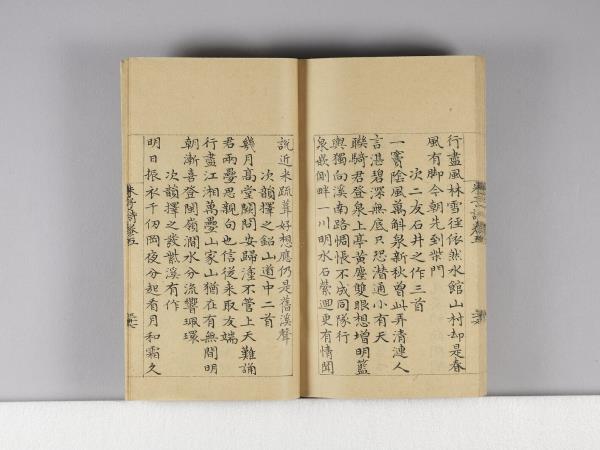 行盡風林雪徑依然水館山村却是春
風有脚今朝先到柴門
次二友石井之作三首
一竇陰風萬斛泉新秋曾此弄清漣人
言湛碧深無底只恐潜通小有天
聯騎君登泉上亭黄塵雙眼想增明籃
輿獨向溪南路惆悵不成同隊行
泉嵌側畔一川明水石縈迴更有情聞
說近來疏葺好想應仍是舊溪聲
次韻擇之鉛山道中二首
幾月高堂闕問安歸塗不管上天難誦
君兩疊思親句也信從來取友端
行盡江湘萬疊山家山猶在有無間明
朝漸喜登閩嶺澗水分流響珮環
次韻擇之發紫溪有作
明日振衣千仞岡夜分起看月和霜久